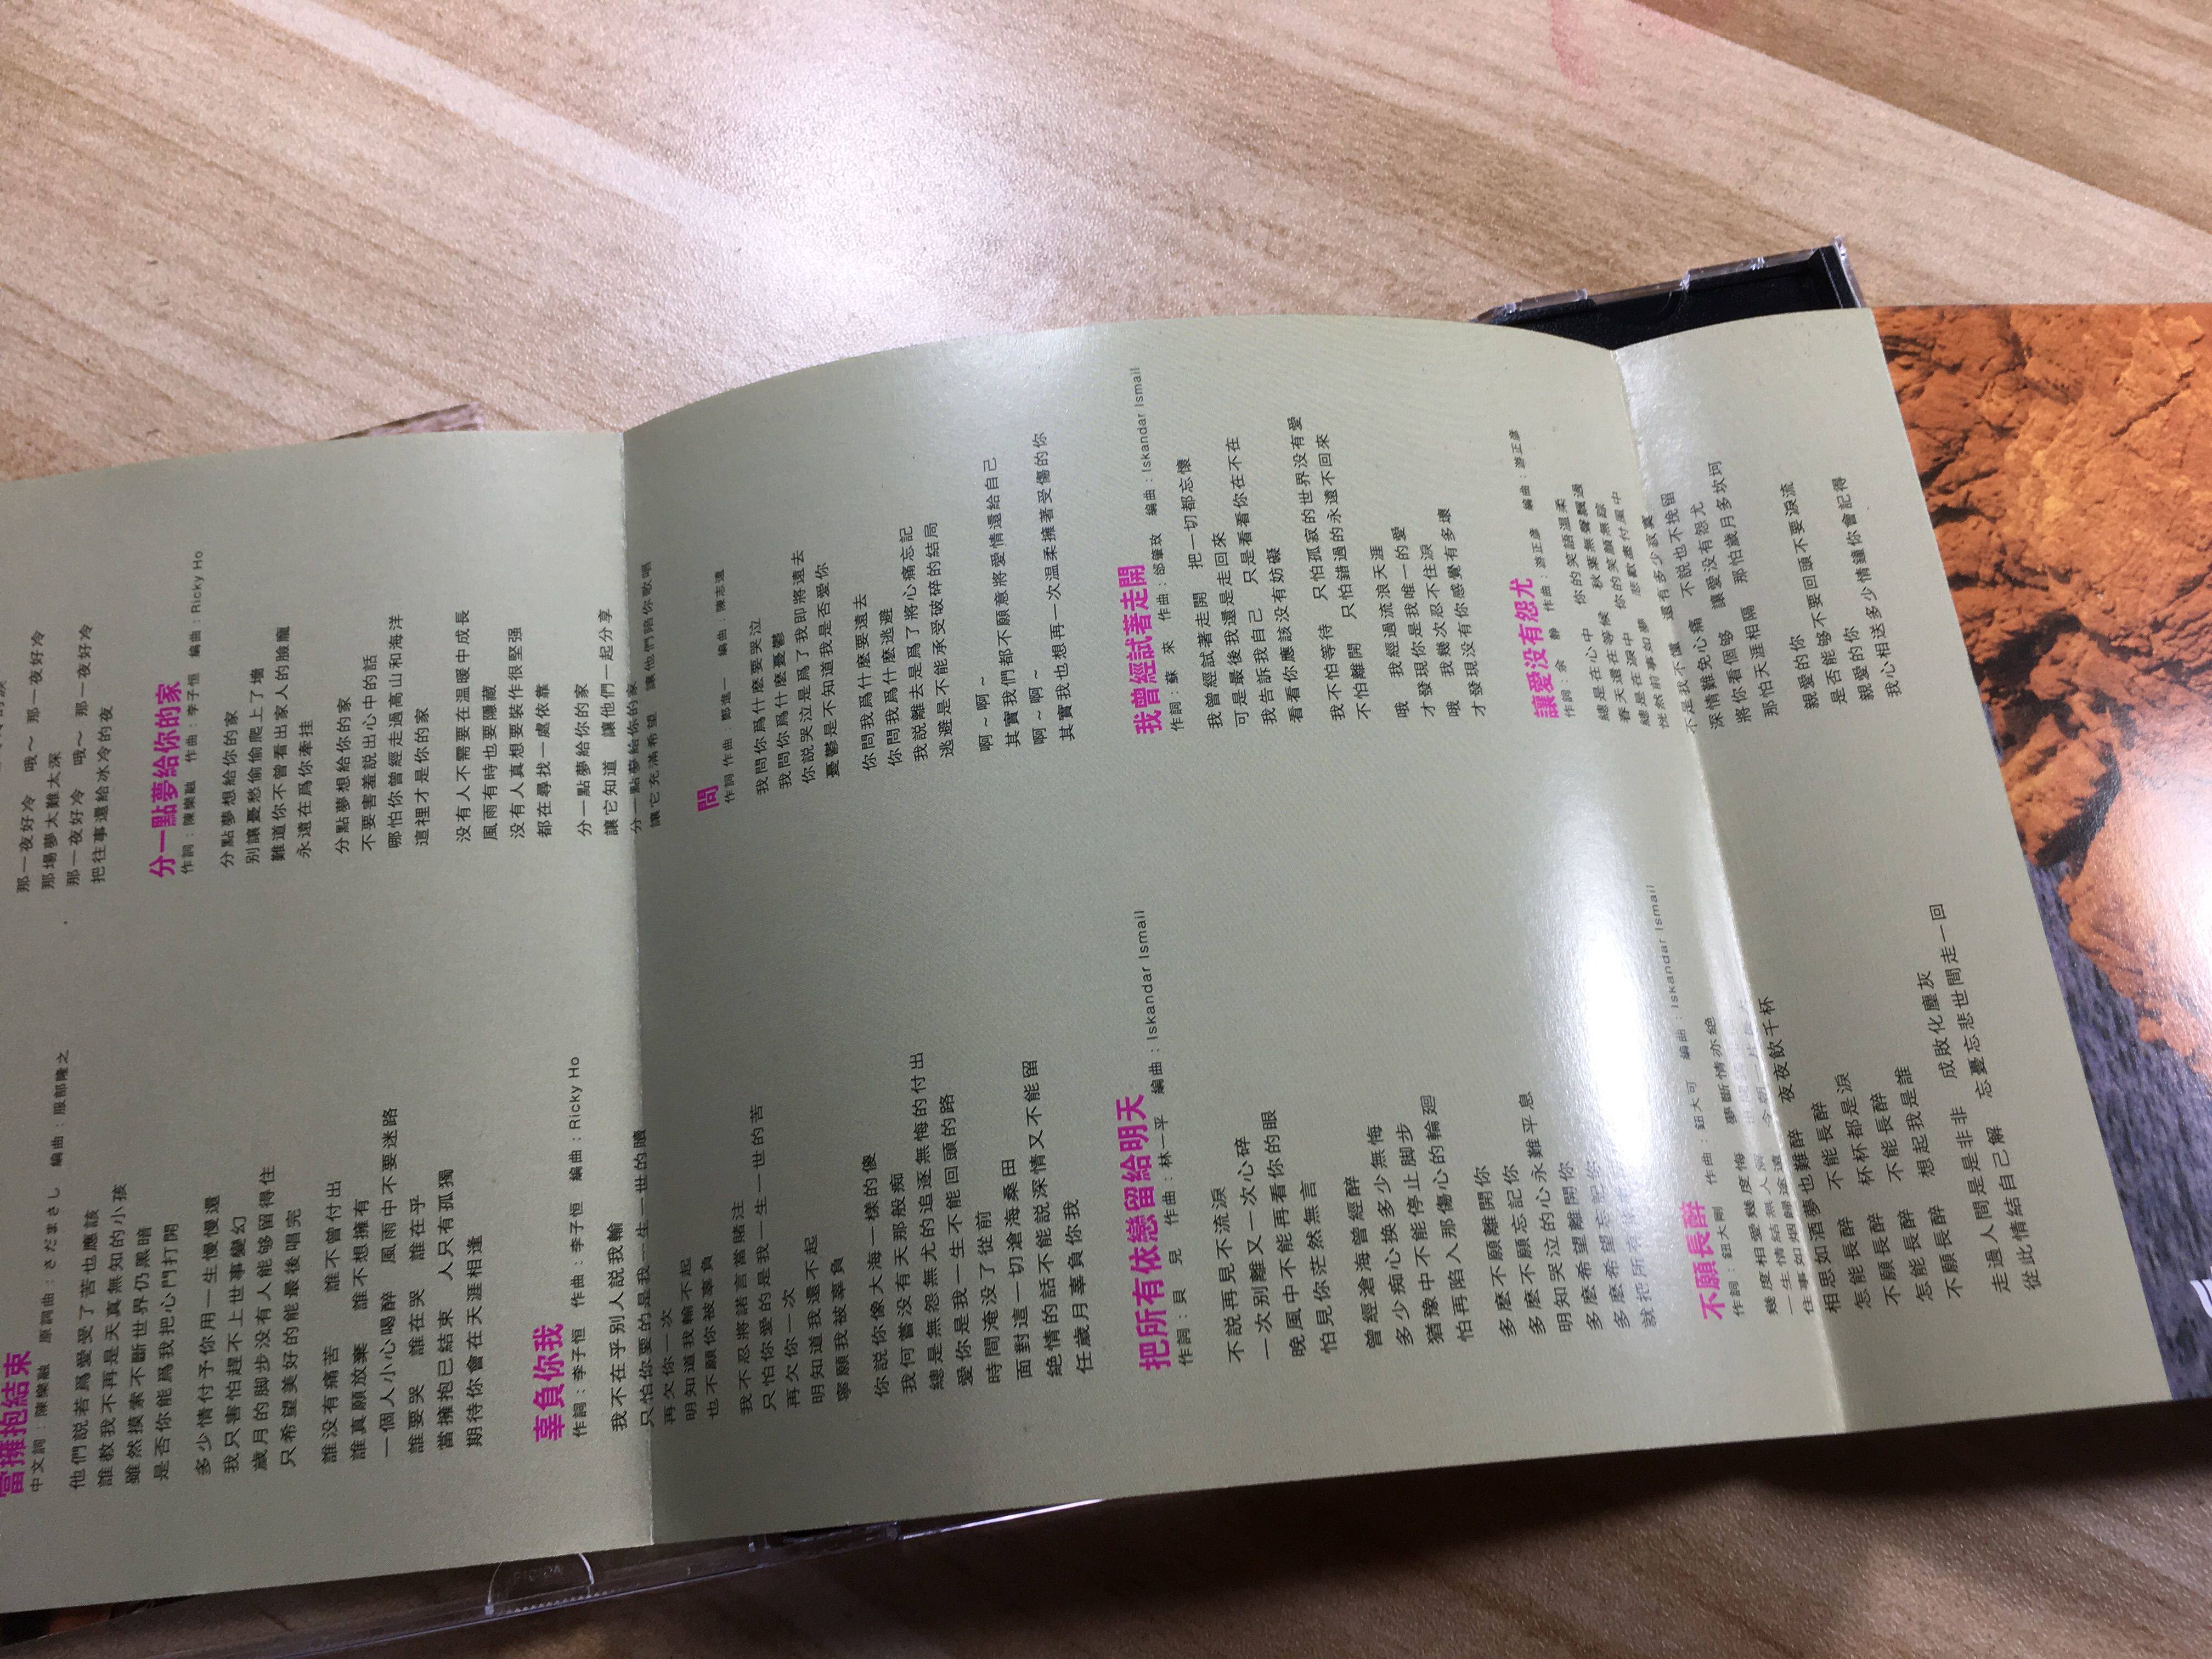 當擁抱結束
中文詞：陳樂融 原詞曲：さだまさし 編曲：服部隆之
他們說若爲愛受了苦也應該
誰教我不再是天真無知的小孩
雖然摸索不斷世界仍黑暗
是否你能爲我把心門打開
多少情付予你用一生慢慢還
我只害怕趕不上世事變幻
歲月的脚步没有人能够留得住
只希望美好的能最後唱完
誰没有痛苦 誰不曾付出
誰真願放棄 誰不想擁有
一個人小心喝醉 風雨中不要迷路
誰要哭 誰在哭 誰在乎
當擁抱已結束 人只有孤獨
期待你會在天涯相逢
辜負你我
作詞：李子恒 作曲：李子恒 編曲：Ricky Ho
我不在乎别人説我輸
只怕你要的是我一生一世的贖
再欠你一次
明知道我輸不起
也不願你被辜負
我不忍將諾言當賭注
只怕你愛的是我一生一世的苦
再欠你一次
明知道我還不起
寧願我被辜負
你説你像大海一樣的傻
我何嘗没有天那般痴
總是無怨無尤的追逐無悔的付出
愛你是我一生不能回頭的路
時間淹没了從前
面對這一切滄海桑田
絶情的話不能説深情又不能留
任歲月辜負你我
把所有依戀留給明天
作詞：貝 兒 作曲：林一平 編曲：Iskandar Ismail
不説再見不流淚
一次别離又一次心碎
晚風中不能再看你的眼
怕見你茫然無言
曾經滄海曾經醉
多少痴心換多少無悔
猶豫中不能停止脚步
怕再陷入那傷心的輪廻
多麽不願離開你
多麽不願忘記你
明知哭泣的心永難平息
多麽希望離開你
多麽希望忘記你
就把所有依戀
不願長醉
作詞：鈕大剛 作曲：鈕大可 編曲：Iskandar Ismail
幾度相愛幾度悔 夢斷情亦絶
一生情結無人問
往事如烟歸途遠
相思如酒夢也難醉 夜夜飲千杯
怎能長醉 不能長醉
不願長醉 杯杯都是淚
怎能長醉 不能長醉
不願長醉 想起我是誰
走過人間是是非非 成敗化塵灰
從此情結自己解 忘憂忘悲世間走一回
那一夜好冷 哦～ 那一夜好冷
那場夢太難太深
那一夜好冷 哦～ 那一夜好冷
把往事還給冰冷的夜
分一點夢給你的家
作詞：陳樂融 作曲：李子恒 編曲：Ricky Ho
分點夢想給你的家
别讓憂愁偷偷爬上了墻
難道你不曾看出家人的臉龐
永遠在爲你牽挂
分點夢想給你的家
不要害羞説出心中的話
哪怕你曾經走過高山和海洋
這裡才是你的家
没有人不需要在温暖中成長
風雨有時也要隱藏
没有人真想要裝作很堅强
都在尋找一處依靠
分一點夢給你的家
讓它知道 讓他們一起分享
分一點夢給你的家
讓它充滿希望 讓他們陪你歌唱
問
作詞作曲：鄭進一 編曲：陳志遠
我問你爲什麽要哭泣
我問你爲什麽憂鬱
你説哭泣是爲了我即將遠去
憂鬱是不知道我是否愛你
你問我爲什麽要遠去
你問我爲什麽逃避
我説離去是爲了將心痛忘記
逃避是不能承受破碎的結局
啊～啊～
其實我們都不願意將愛情還給自己
啊～啊～
其實我也想再一次温柔擁著受傷的你
我曾經試著走開
作詞：蘇 來 作曲：邰肇玫 編曲：Iskandar Ismail
我曾經試著走開 把一切都忘懷
可是最後我還是走回來
我告訴我自己 只是看看你在不在
看看你應該没有妨礙
我不怕等待 只怕孤寂的世界没有愛
不怕離開 只怕錯過的永遠不回來
哦 我經過流浪天涯
才發現你是我唯一的愛
哦 我幾次忍不住淚
才發現没有你感覺有多壞
讓愛没有怨尤
作詞：余 静 作曲：游正彦 編曲：游正彦
總是在心中 你的笑語温柔
春天還在等候 秋葉無聲飄過
總是在淚中 你的笑顔無踪
恍然前事如夢 悲歡盡付風中
不是我不懂 還有多少寂寞
深情難免心痛 不説也不挽留
將你看個够 讓愛没有怨尤
那怕天涯相隔 那怕歲月多坎坷
親愛的你
是否能够不要回頭不要淚流
親愛的你
我心相送多少情鐘你會記得